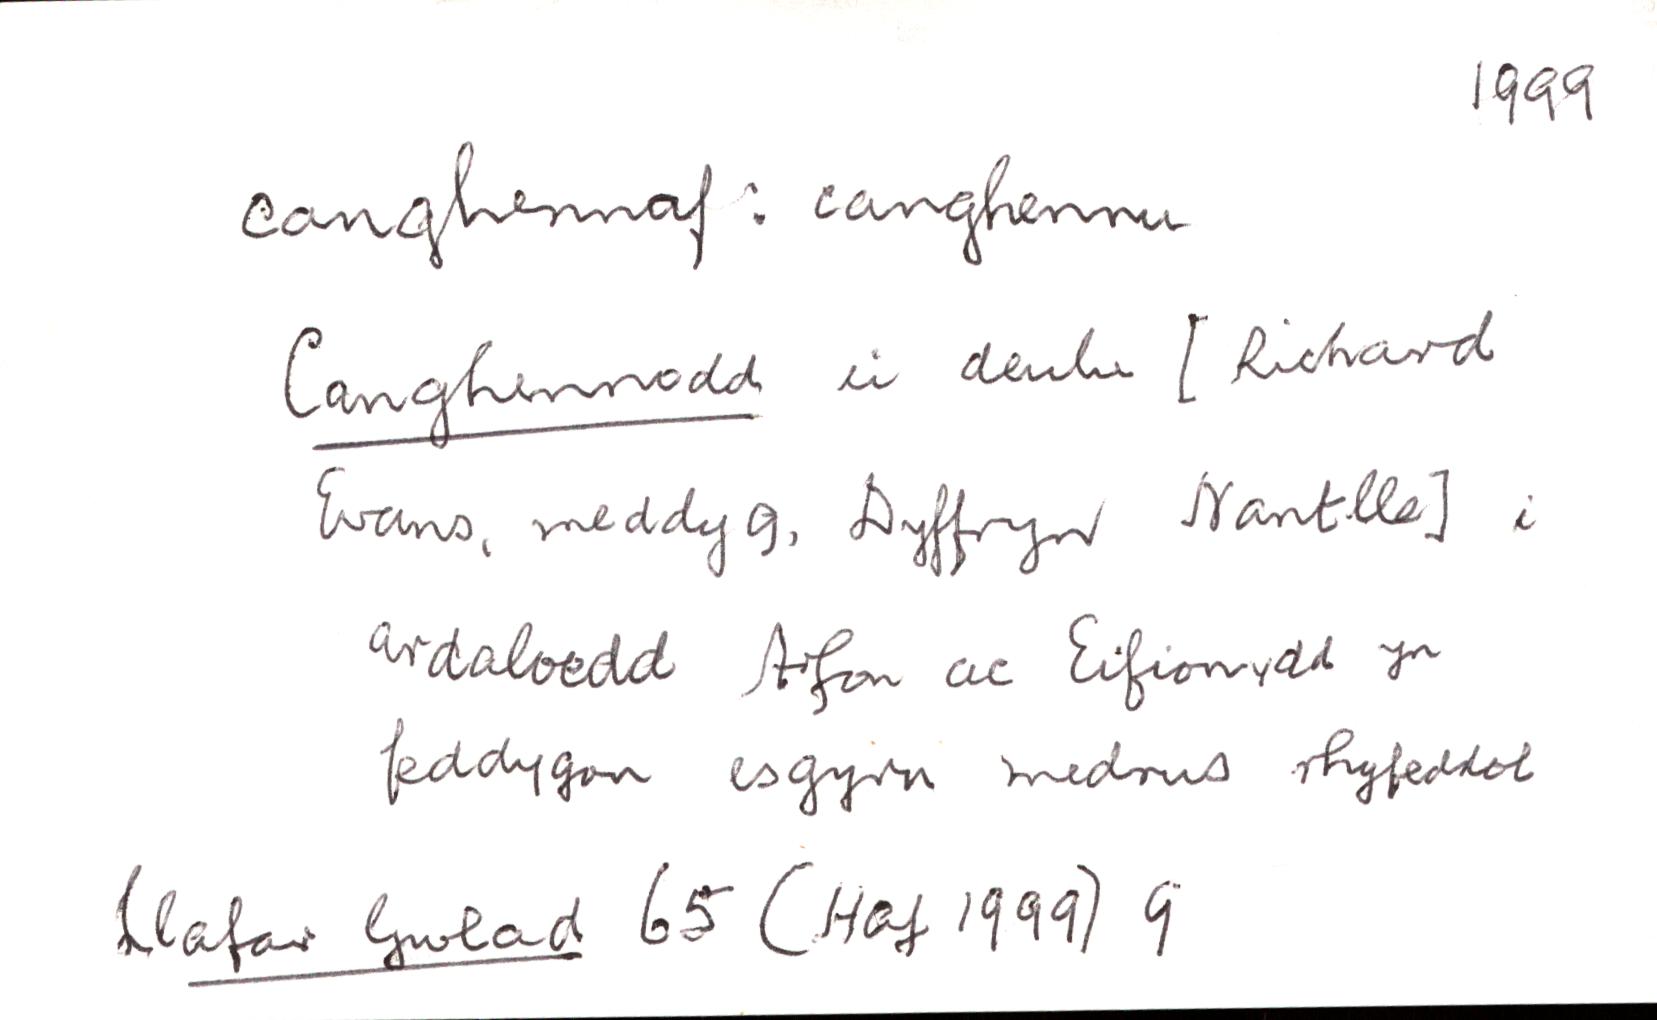 1999
canghennaf: canghennu
Canghennodd ei deulu [Richard
Evans, meddyg, Dyffryn Nantlle] i
ardaloedd Arfon ac Eifionydd yn
feddygon esgyrn medrus rhyfeddol
Llafar Gwlad 65 (Haf 1999) 9